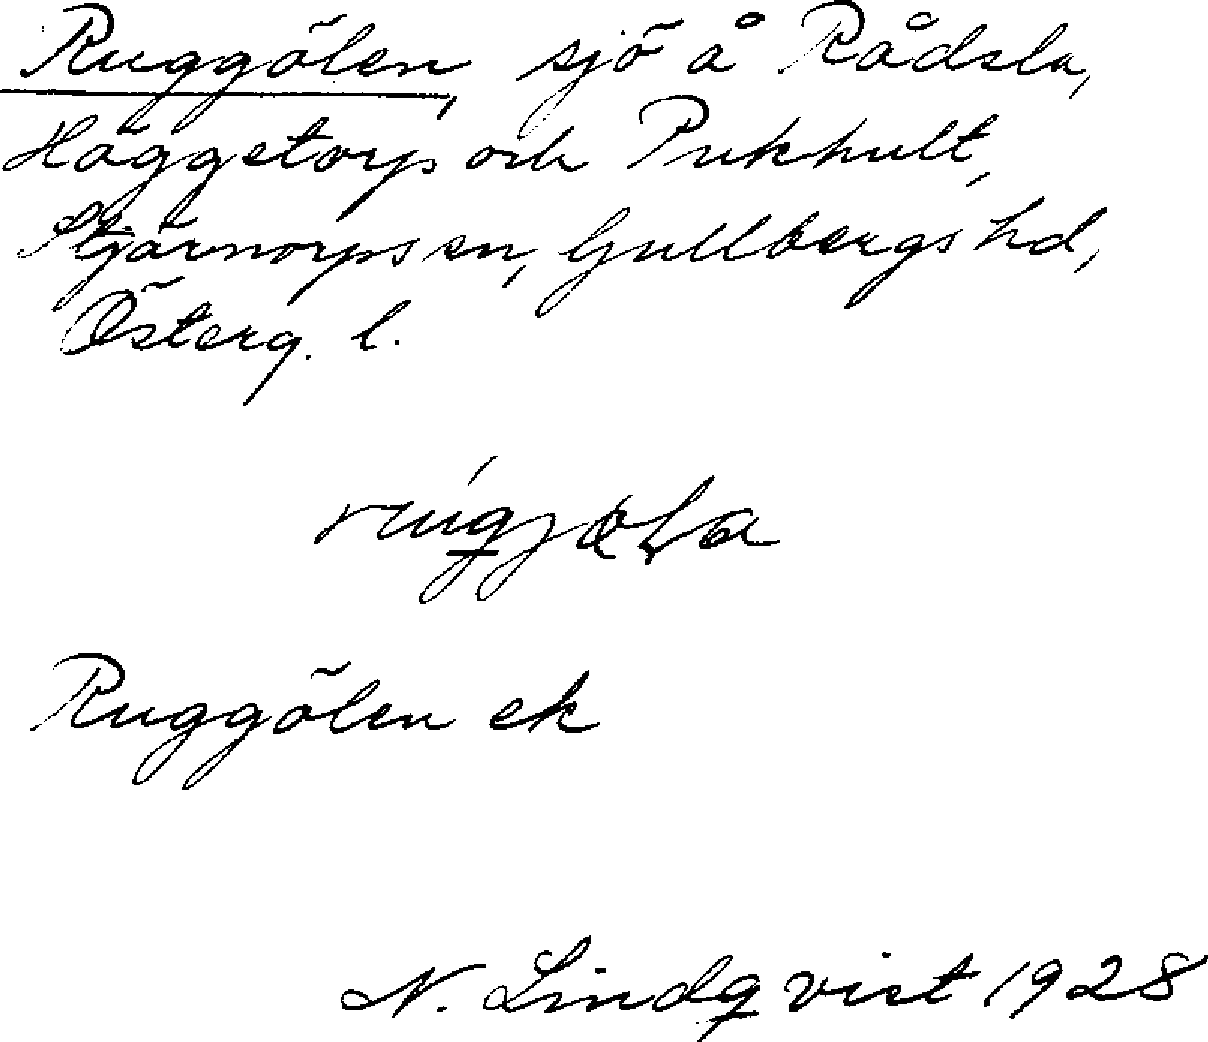 Ruggölen, sjö å Rådsla,
Häggetorp och Pukhult,
Stjärnorps sn, Gullbergs hd,
Österg. l.
Ruggölen ek
N. Lindqvist 1928